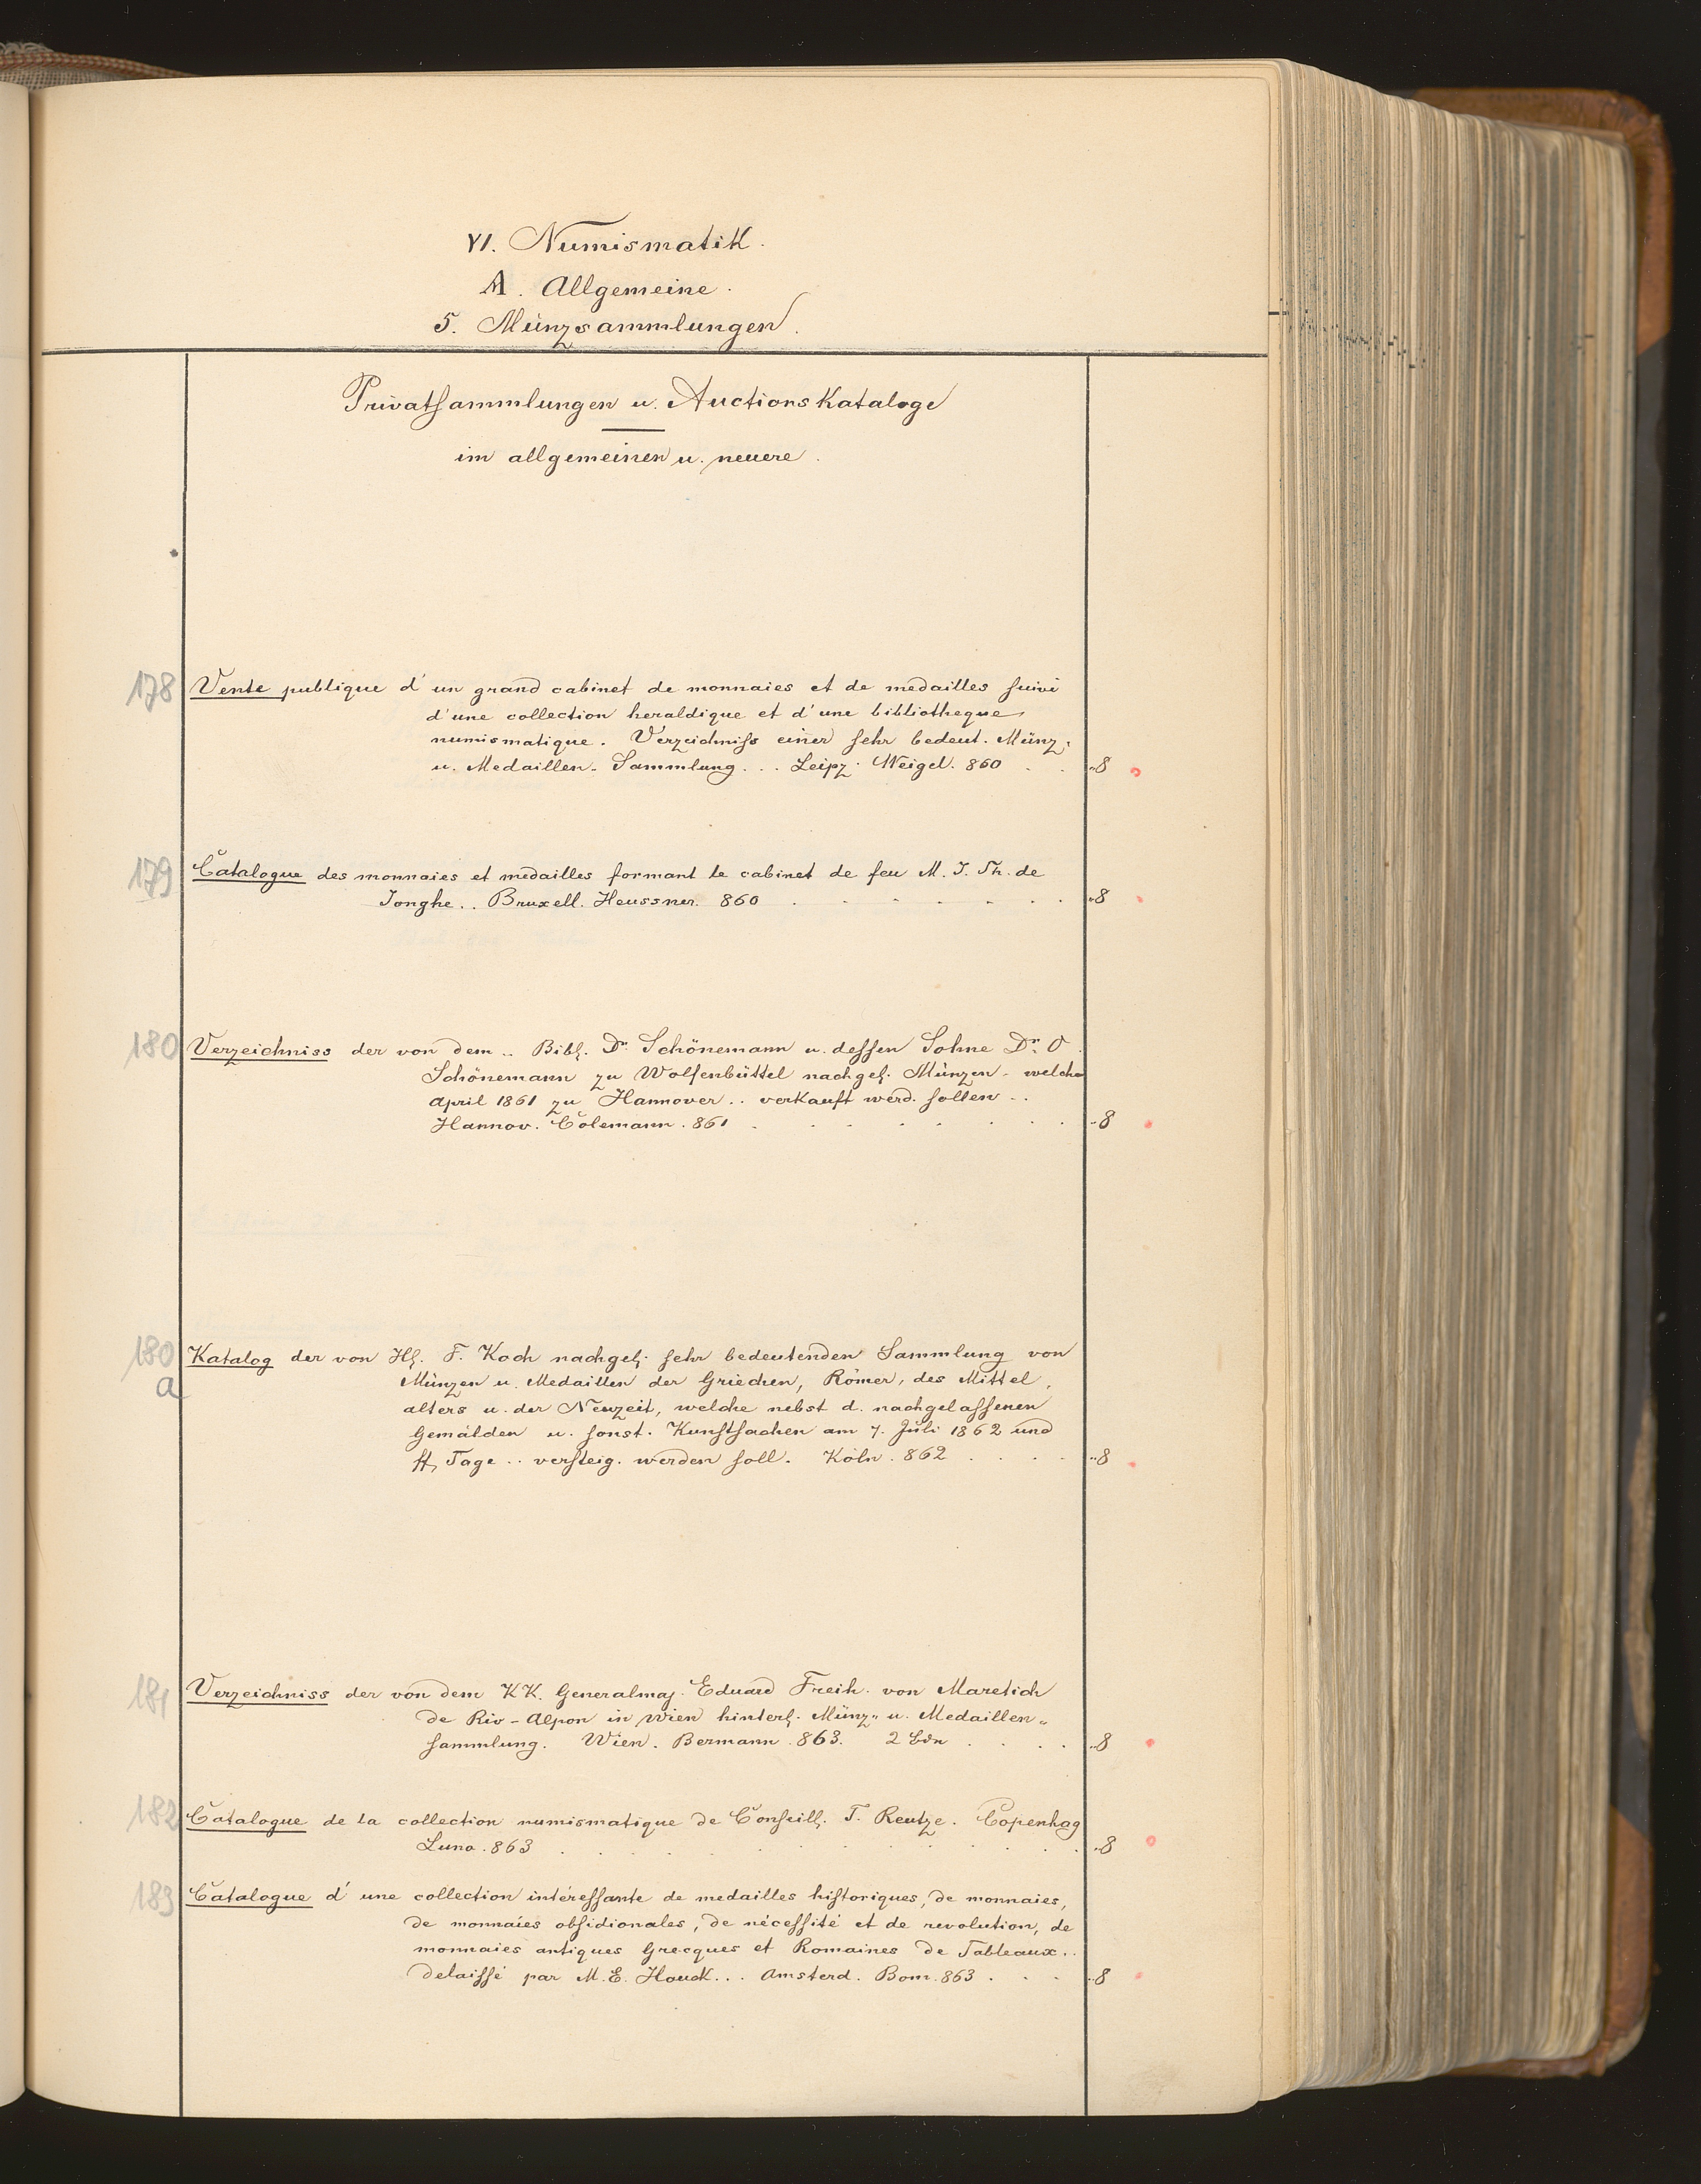 VI. Numismatik.
A. Allgemeine.
5. Münzsammlungen.
Privatsammlungen u. Auctions Kataloge
im allgemeinen u. neuere.
178 Vente publique d'un grand cabinet de monnaies et de medailles suivi
d'une collection heraldique et d'une bibliotheque
numismatique. Verzeichniss einer sehr bedeut. Münz-
u. Medaillen-Sammlung... Leipz. Weigel. 860 . . "8
179 Catalogue des monnaies et medailles formant le cabinet de feu M. J. Th. de
Jonghe.. Bruxell. Heussner. 860 . . . . . . . "8
180 Verzeichniss der von dem .. Bibl. Dr. Schönemann u. dessen Sohne Dr. O.
Schönemann zu Wolfenbüttel nachgel. Münzen - welche
April 1861 zu Hannover.. verkauft werd. sollen ..
Hannov. Colemann. 861 . . . . . . . . "8
180 a Katalog der von Hl. F. Koch nachgel. sehr bedeutenden Sammlung von
Münzen u. Medaillen der Griechen, Römer, des Mittel-
alters u. der Neuzeit, welche nebst d. nachgelassenen
Gemälden u. sonst. Kunstsachen am 7. Juli 1862 und
ff. Tage .. versteig. werden soll. Köln. 862 . . . . "8
181 Verzeichniss der von dem KK. Generalmaj. Eduard Freih. von Maretich
de Riv-Alpon in Wien hinterl. Münz- u. Medaillen-
sammlung. Wien. Bermann. 863. 2 Bdn . . . . "8
182 Catalogue de la collection numismatique de Conseill. T. Reutze. Copenhag
Luno. 863 . . . . . . . . . . "8
183 Catalogue d'une collection intéressante de medailles historiques, de monnaies,
de monnaies obsidionales, de nécessité et de revolution, de
monnaies antiques Grecques et Romaines de Tableaux..
delaissé par M. E. Houck... Amsterd. Bom. 863 . . . "8